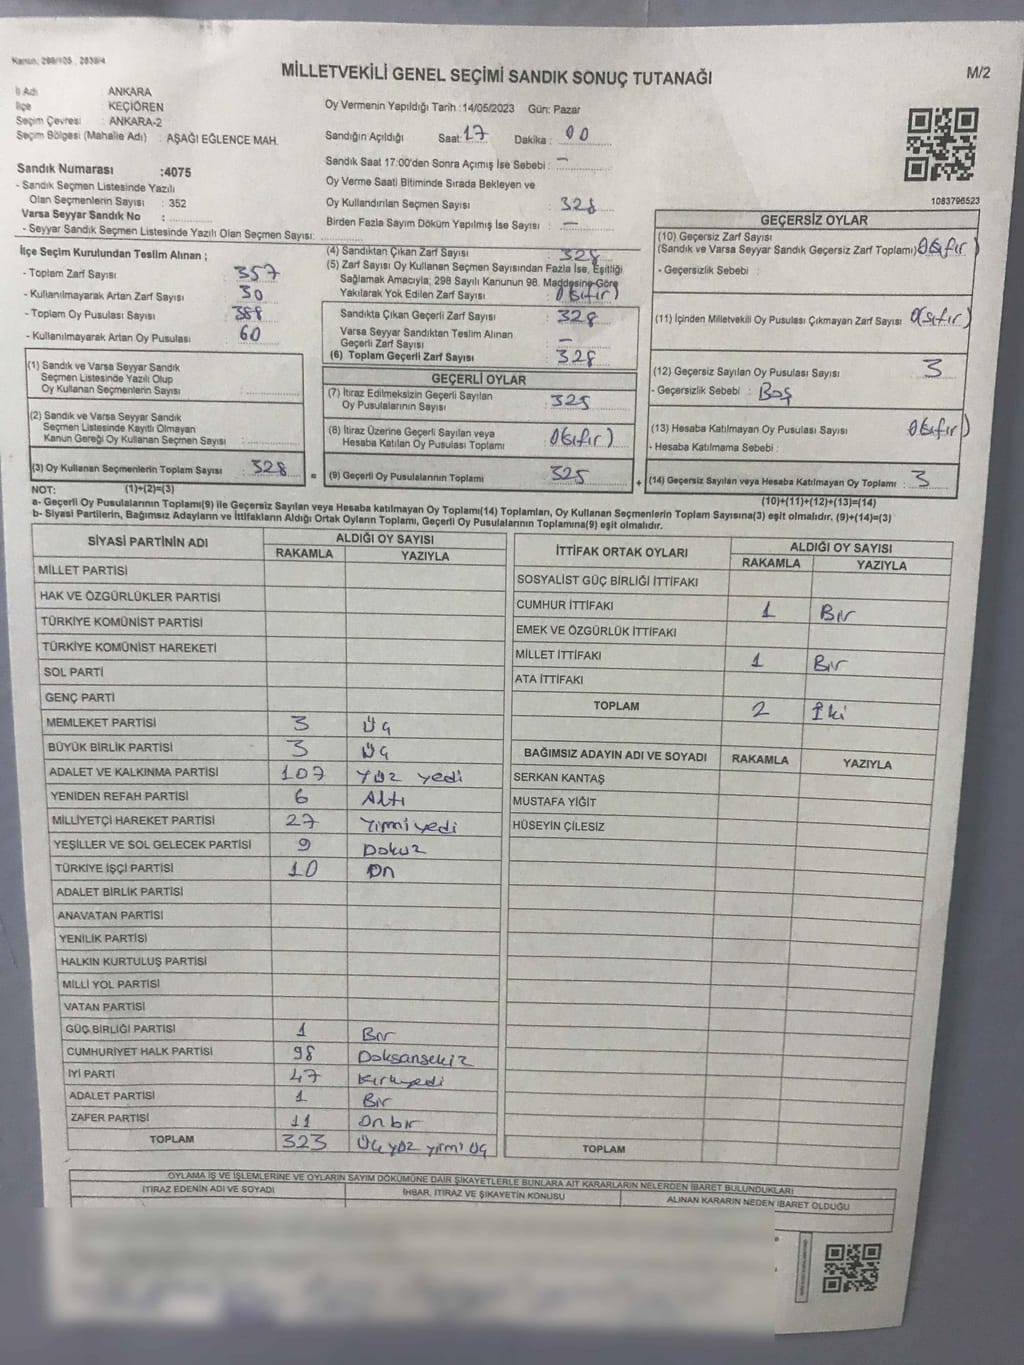 Kanun: 298/105 , 2839/4
MİLLETVEKİLİ GENEL SEÇİMİ SANDIK SONUÇ TUTANAĞI
M/2
İl Adı : ANKARA
İlçe : KEÇİÖREN
Seçim Çevresi : ANKARA-2
Seçim Bölgesi (Mahalle Adı) : AŞAĞI EĞLENCE MAH.
Sandık Numarası :4075
- Sandık Seçmen Listesinde Yazılı
Olan Seçmenlerin Sayısı : 352
Varsa Seyyar Sandık No :
- Seyyar Sandık Seçmen Listesinde Yazılı Olan Seçmen Sayısı:
Oy Vermenin Yapıldığı Tarih :14/05/2023 Gün: Pazar
Sandığın Açıldığı Saat: 17 Dakika : 00
Sandık Saat 17:00'den Sonra Açımış İse Sebebi : –
Oy Verme Saati Bitiminde Sırada Bekleyen ve
Oy Kullandırılan Seçmen Sayısı : 328
Birden Fazla Sayım Döküm Yapılmış İse Sayısı : –
1083796523
İlçe Seçim Kurulundan Teslim Alınan ;
- Toplam Zarf Sayısı : 357
- Kullanılmayarak Artan Zarf Sayısı : 30
- Toplam Oy Pusulası Sayısı : 388
- Kullanılmayarak Artan Oy Pusulası : 60
(1) Sandık ve Varsa Seyyar Sandık
Seçmen Listesinde Yazılı Olup
Oy Kullanan Seçmenlerin Sayısı :
(2) Sandık ve Varsa Seyyar Sandık
Seçmen Listesinde Kayıtlı Olmayan
Kanun Gereği Oy Kullanan Seçmen Sayısı :
(3) Oy Kullanan Seçmenlerin Toplam Sayısı : 328
(4) Sandıktan Çıkan Zarf Sayısı : 328
(5) Zarf Sayısı Oy Kullanan Seçmen Sayısından Fazla İse, Eşitliği
Sağlamak Amacıyla; 298 Sayılı Kanunun 98. Maddesine Göre
Yakılarak Yok Edilen Zarf Sayısı : 0(sıfır)
Sandıkta Çıkan Geçerli Zarf Sayısı : 328
Varsa Seyyar Sandıktan Teslim Alınan
Geçerli Zarf Sayısı : –
(6) Toplam Geçerli Zarf Sayısı : 328
GEÇERLİ OYLAR
(7) İtiraz Edilmeksizin Geçerli Sayılan
Oy Pusulalarının Sayısı : 325
(8) İtiraz Üzerine Geçerli Sayılan veya
Hesaba Katılan Oy Pusulası Toplamı : 0(sıfır)
= (9) Geçerli Oy Pusulalarının Toplamı : 325
GEÇERSİZ OYLAR
(10) Geçersiz Zarf Sayısı
(Sandık ve Varsa Seyyar Sandık Geçersiz Zarf Toplamı) 0(sıfır)
- Geçersizlik Sebebi :
(11) İçinden Milletvekili Oy Pusulası Çıkmayan Zarf Sayısı : 0(sıfır)
(12) Geçersiz Sayılan Oy Pusulası Sayısı : 3
- Geçersizlik Sebebi : Boş
(13) Hesaba Katılmayan Oy Pusulası Sayısı : 0(sıfır)
- Hesaba Katılmama Sebebi :
+ (14) Geçersiz Sayılan veya Hesaba Katılmayan Oy Toplamı : 3
NOT: (1)+(2)=(3) (10)+(11)+(12)+(13)=(14)
a- Geçerli Oy Pusulalarının Toplamı(9) ile Geçersiz Sayılan veya Hesaba katılmayan Oy Toplamı(14) Toplamları, Oy Kullanan Seçmenlerin Toplam Sayısına(3) eşit olmalıdır. (9)+(14)=(3)
b- Siyasi Partilerin, Bağımsız Adayların ve İttifakların Aldığı Ortak Oyların Toplamı, Geçerli Oy Pusulalarının Toplamına(9) eşit olmalıdır.
SİYASİ PARTİNİN ADI ALDIĞI OY SAYISI
RAKAMLA YAZIYLA
MİLLET PARTİSİ
HAK VE ÖZGÜRLÜKLER PARTİSİ
TÜRKİYE KOMÜNİST PARTİSİ
TÜRKİYE KOMÜNİST HAREKETİ
SOL PARTİ
GENÇ PARTİ
MEMLEKET PARTİSİ 3 Üç
BÜYÜK BİRLİK PARTİSİ 3 Üç
ADALET VE KALKINMA PARTİSİ 107 Yüz yedi
YENİDEN REFAH PARTİSİ 6 Altı
MİLLİYETÇİ HAREKET PARTİSİ 27 Yirmi yedi
YEŞİLLER VE SOL GELECEK PARTİSİ 9 Dokuz
TÜRKİYE İŞÇİ PARTİSİ 10 On
ADALET BİRLİK PARTİSİ
ANAVATAN PARTİSİ
YENİLİK PARTİSİ
HALKIN KURTULUŞ PARTİSİ
MİLLİ YOL PARTİSİ
VATAN PARTİSİ
GÜÇ BİRLİĞİ PARTİSİ 1 Bir
CUMHURİYET HALK PARTİSİ 98 Doksansekiz
İYİ PARTİ 47 Kırkyedi
ADALET PARTİSİ 1 Bir
ZAFER PARTİSİ 11 On bir
TOPLAM 323 Üç yüz yirmi üç
İTTİFAK ORTAK OYLARI ALDIĞI OY SAYISI
RAKAMLA YAZIYLA
SOSYALİST GÜÇ BİRLİĞİ İTTİFAKI
CUMHUR İTTİFAKI 1 Bir
EMEK VE ÖZGÜRLÜK İTTİFAKI
MİLLET İTTİFAKI 1 Bir
ATA İTTİFAKI
TOPLAM 2 İki
BAĞIMSIZ ADAYIN ADI VE SOYADI RAKAMLA YAZIYLA
SERKAN KANTAŞ
MUSTAFA YİĞİT
HÜSEYİN ÇİLESİZ
TOPLAM
OYLAMA İŞ VE İŞLEMLERİNE VE OYLARIN SAYIM DÖKÜMÜNE DAİR ŞİKAYETLERLE BUNLARA AİT KARARLARIN NELERDEN İBARET BULUNDUKLARI
İTİRAZ EDENİN ADI VE SOYADI İHBAR, İTİRAZ VE ŞİKAYETİN KONUSU ALINAN KARARIN NEDEN İBARET OLDUĞU